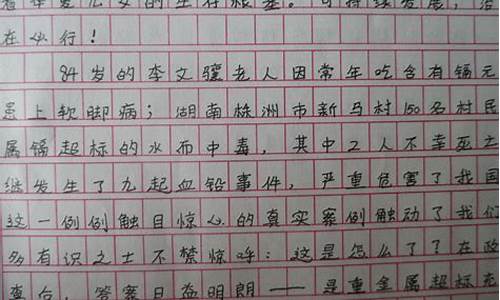 着华夏儿女的生存根基。可持续发展，治
在必行！
84岁的李文骧老人因常年吃含有镉元
患上软脚病；湖南株洲市新马村150名村民
属镉超标的水而中毒，其中2人不幸死亡
继发生了九起血铅事件，严重危害了我国
这一例例触目惊心的真实案例触动了我们
多有识之士不禁惊呼：这是怎么了？在政
答案日益明朗——是重金属超标